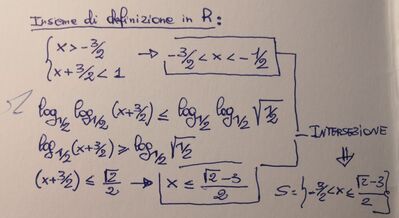 Insieme di definizione in R:
{ x > -3/2
x + 3/2 < 1 → -3/2 < x < -1/2
log_{1/2} log_{1/2} (x+3/2) ≤ log_{1/2} log_{1/2} √(1/2)
log_{1/2} (x+3/2) ≥ log_{1/2} √(1/2)
INTERSEZIONE
⇓
(x+3/2) ≤ √2/2 → x ≤ (√2-3)/2
S = {-3/2 < x ≤ (√2-3)/2}